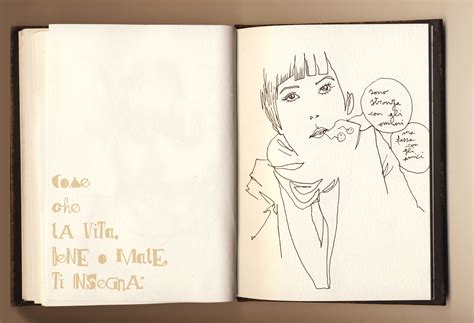 Cose
che
LA VITA,
BENE o MALE,
TI INSEGNA:
sono
stronza
con gli
uomini
con gli
amici